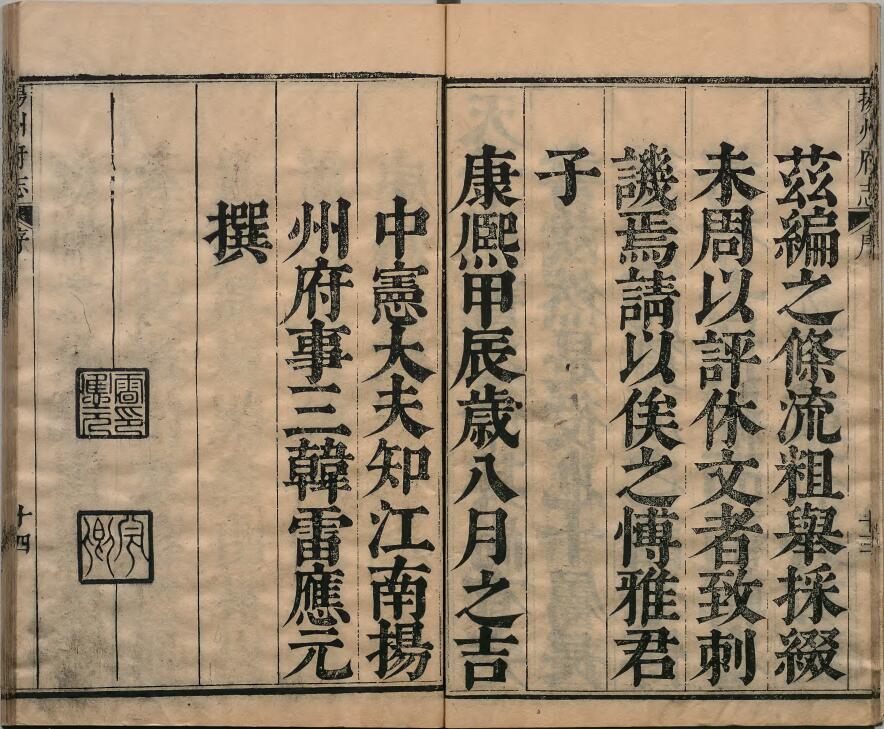 揚州府志 序
茲編之條流粗舉採綴
未周以評休文者致刺
譏焉請以俟之博雅君
子
康熙甲辰歲八月之吉
中憲大夫知江南揚
州府事三韓雷應元
撰
雷印應元
揚州府志 序
十四